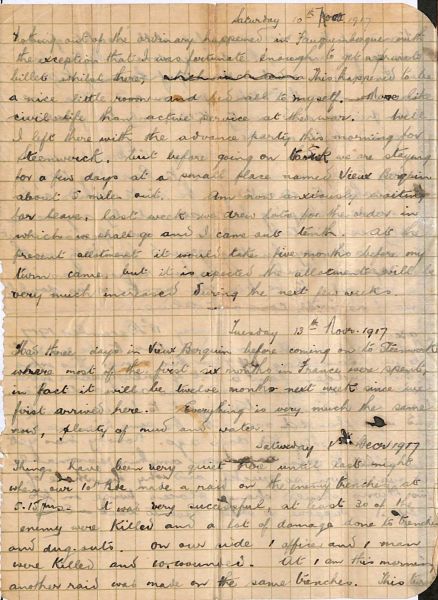 Saturday 10th Nov 1917
Nothing out of the ordinary happened in Fauquembergues with
the exception that I was fortunate enough to get a private
billet whilst there, This happened to be
a nice little room and bed all to myself. More like
civil life than active service at the war. Well
I left there with the advance party this morning for
Steenwerck. but before going on there we are staying
for a few days at a small place named Vieux Berquin
about 5 miles out. Am now anxiously waiting
for leave, last week we drew lots for the order in
which we shall go and I came out tenth. At the
present allotment it would take five months before my
turn came, but it is expected the allotment will be
very much increased during the next few weeks
Tuesday 13th Nov. 1917
Had three days in Vieux Berquin before coming on to Steenwerck
where most of the first six months in France were spent,
in fact it will be twelve months next week since we
first arrived here. Everything is very much the same
now, plenty of mud and water.
Saturday 1st Decr 1917
Things have been very quiet here until last night
when our 10th Bde. made a raid on the enemy trenches at
5.15 pm. It was very successful, at least 30 of the
enemy were killed and a lot of damage done to trenches
and dug-outs. On our side 1 officer and 1 man
were killed and 10 wounded. At 1 am this morning
another raid was made on the same trenches. This time